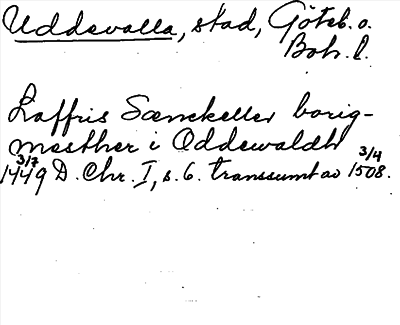 Uddevalla, stad, Göteb. o.
Boh. l.
Laffris Sænckeller borig-
mesther i Oddewaldh
3/7 1449 D. Chr. I, s. 6. transsumt av 3/4 1508.